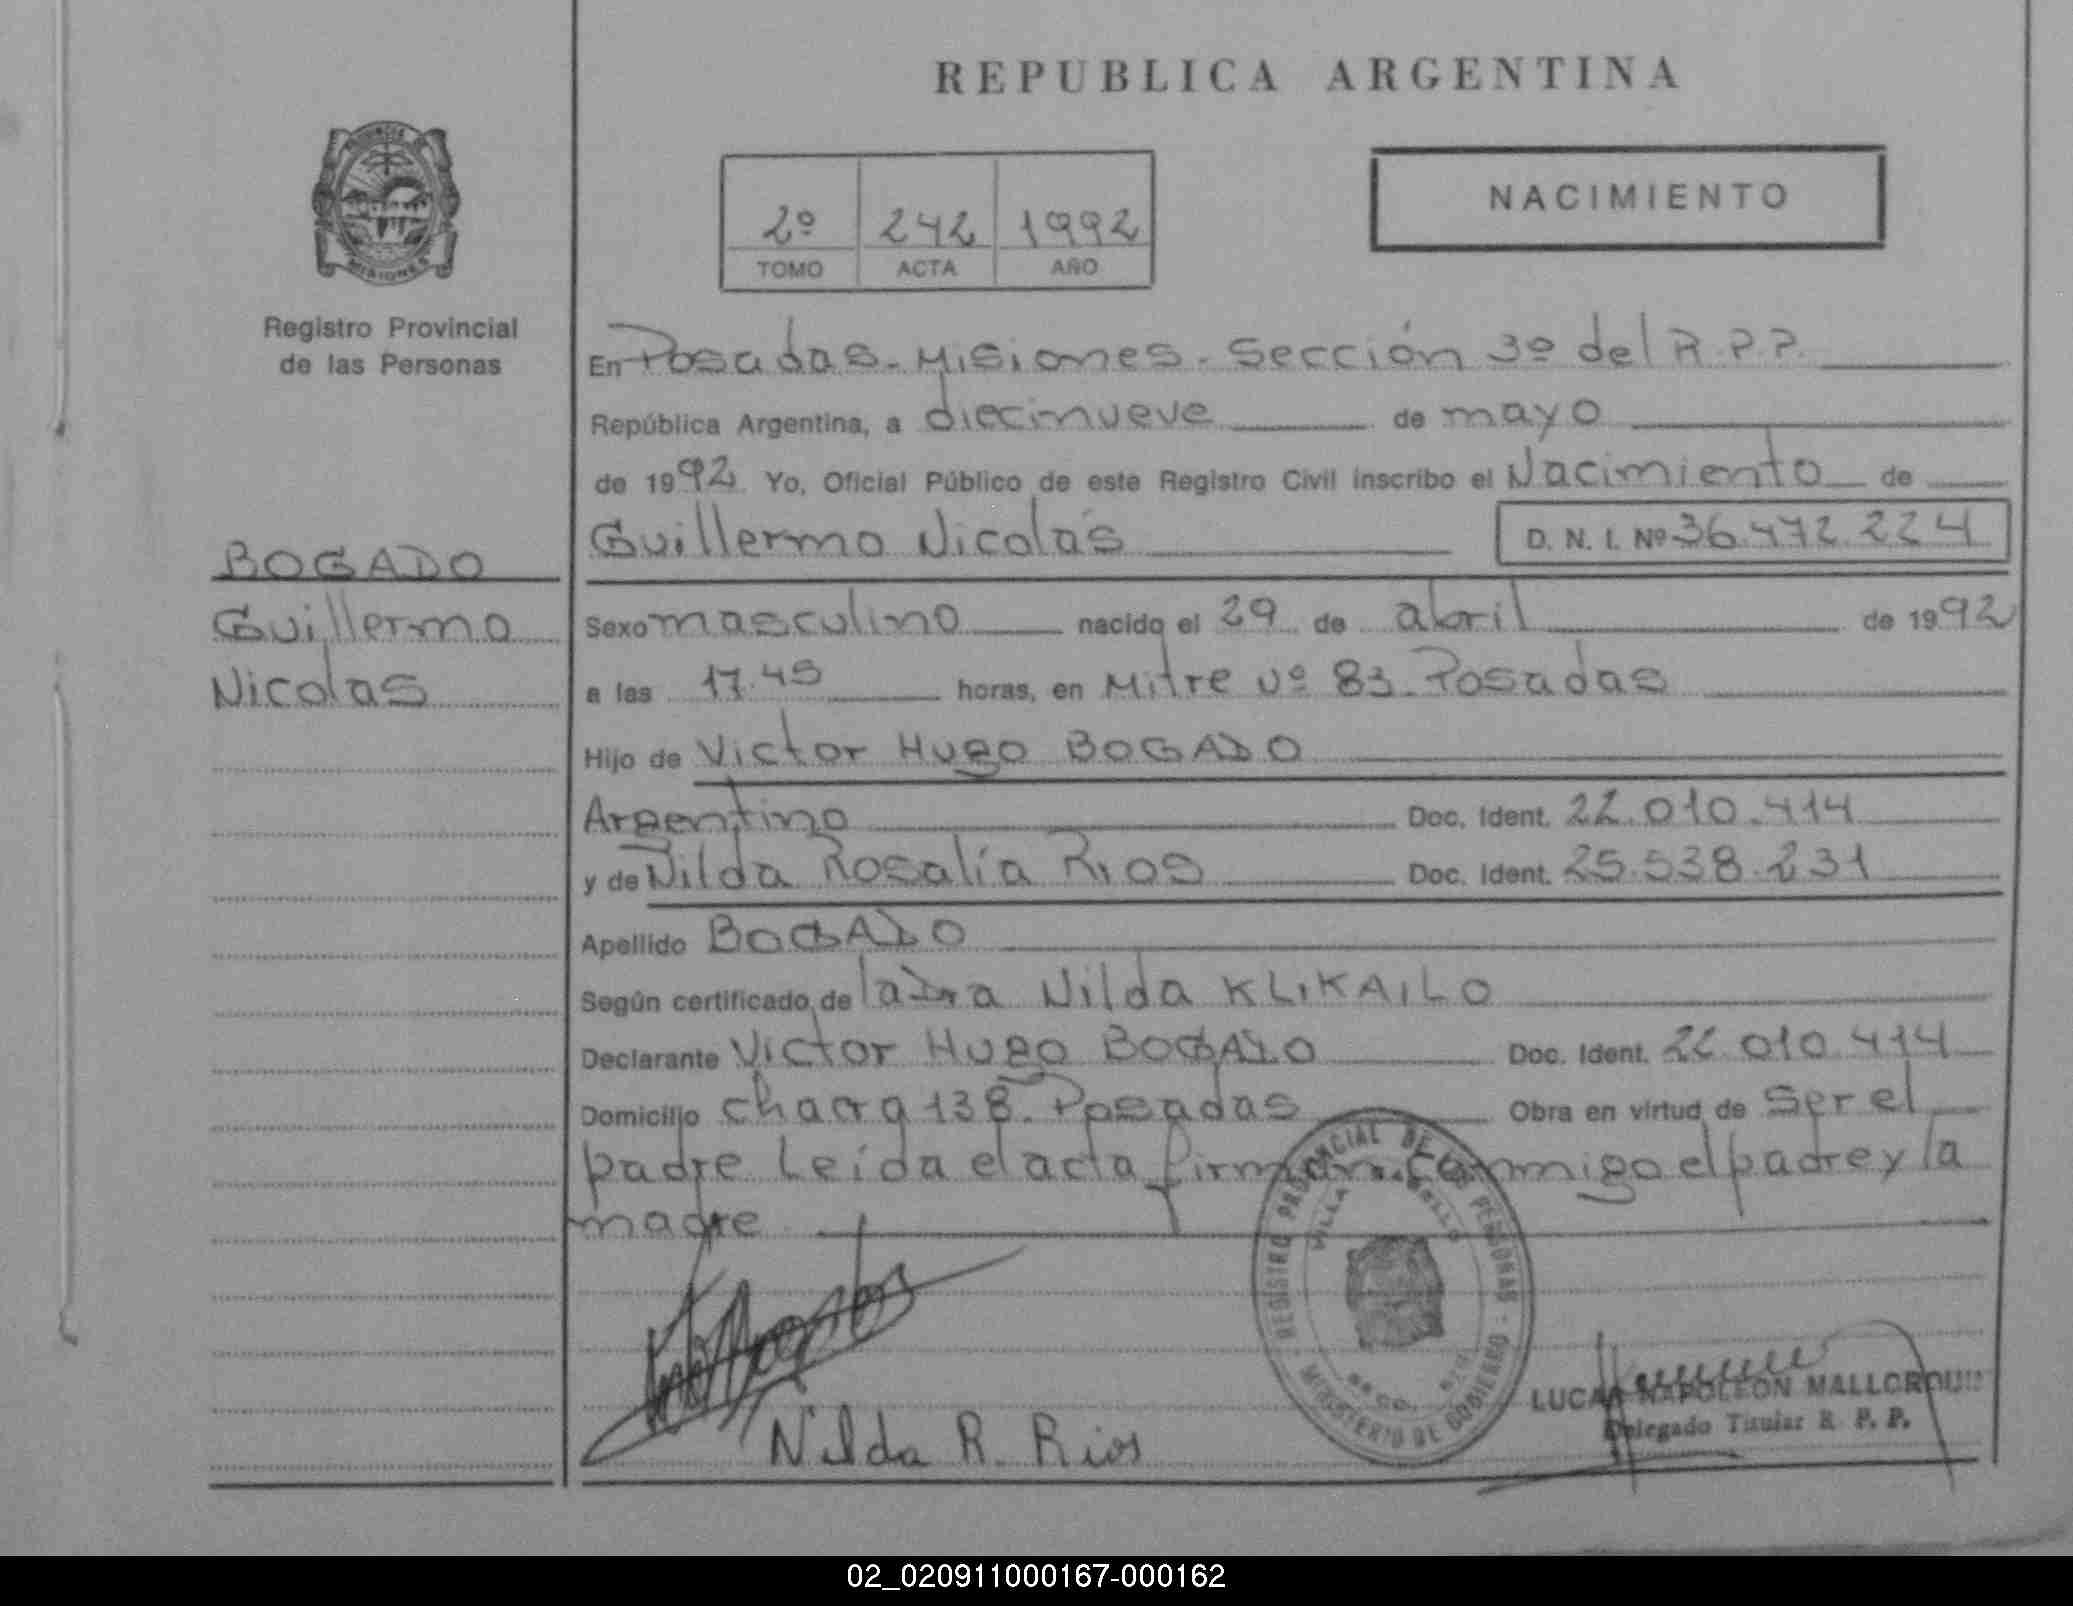 REPUBLICA ARGENTINA
PROVINCIA DE
MISIONES
Registro Provincial
de las Personas
2º 242 1992
TOMO ACTA AÑO
NACIMIENTO
En Posadas - Misiones - Sección 3º del R.P.P.
República Argentina, a diecinueve de mayo
de 1992 Yo, Oficial Público de este Registro Civil inscribo el Nacimiento de
Guillermo Nicolás D. N. I. Nº 36.472.224
BOGADO
Guillermo
Nicolas
Sexo masculino nacido el 29 de abril de 1992
a las 17.45 horas, en Mitre Nº 83 - Posadas
Hijo de Victor Hugo BOGADO
Argentino Doc. Ident. 22.010.414
y de Nilda Rosalía Rios Doc. Ident. 25.538.231
Apellido BOGADO
Según certificado de la Dra Nilda KLIKAILO
Declarante Victor Hugo BOGADO Doc. Ident. 22.010.414
Domicilio chacra 138 - Posadas Obra en virtud de ser el
padre Leída el acta firman conmigo el padre y la
madre
REGISTRO PROVINCIAL DE LAS PERSONAS
MINISTERIO DE GOBIERNO
VILLA
Nilda R. Rios
LUCAS NAPOLEON MALLORQUIN
Delegado Titular R. P. P.
02_020911000167-000162